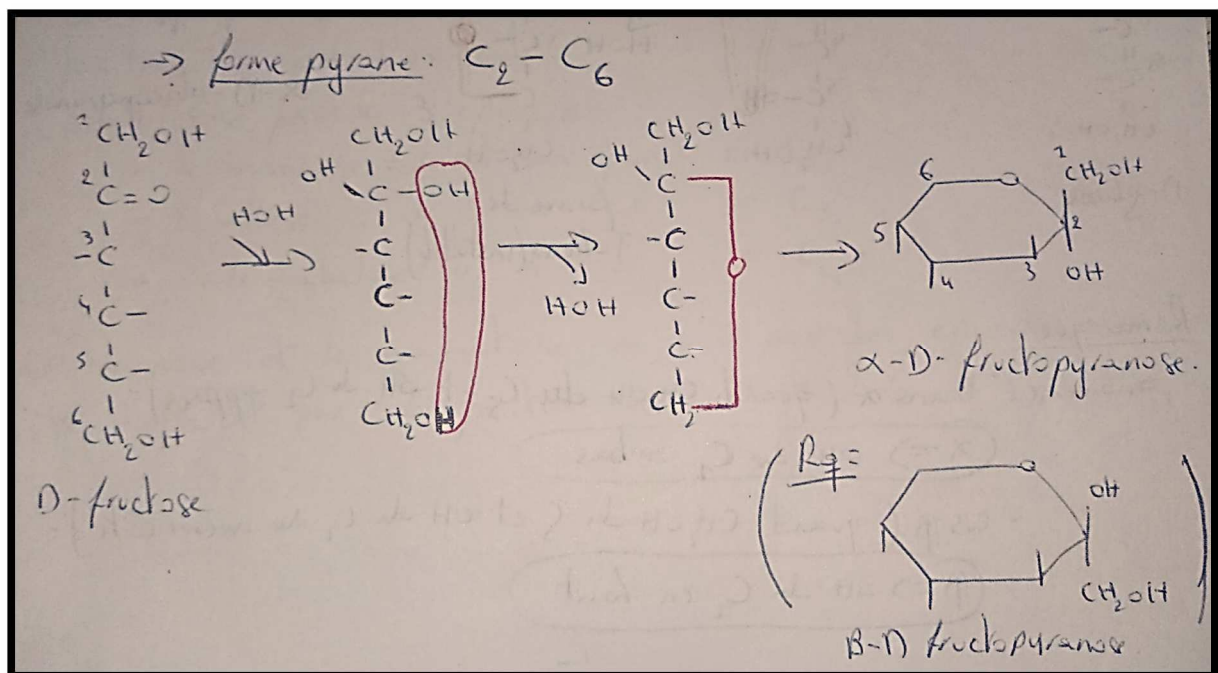 → forme pyrane : C₂ – C₆
¹CH₂OH
²C=O
³-C
⁴C-
⁵C-
⁶CH₂OH
D-fructose
HOH
CH₂OH
OH C-OH
-C
C-
C-
CH₂OH
HOH
CH₂OH
OH C
-C
C-
C-
CH₂
O
6 O ¹CH₂OH
5 2
4 3 OH
α-D-fructopyranose.
(Rq= O
OH
CH₂OH)
B-D fructopyranose